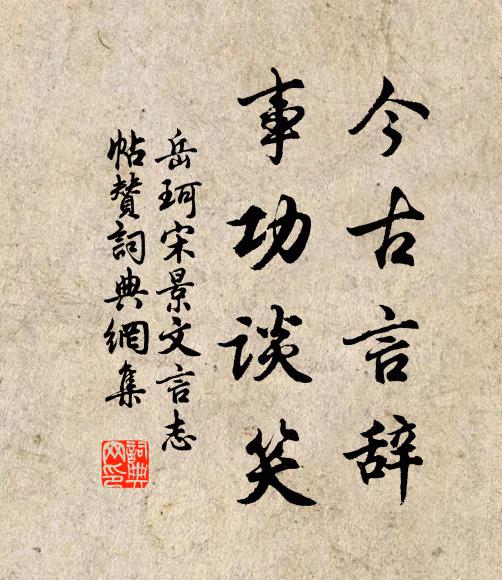 今古言辞
事功谈笑
岳珂宋景文言志
帖赞词典網集
詞典
网印